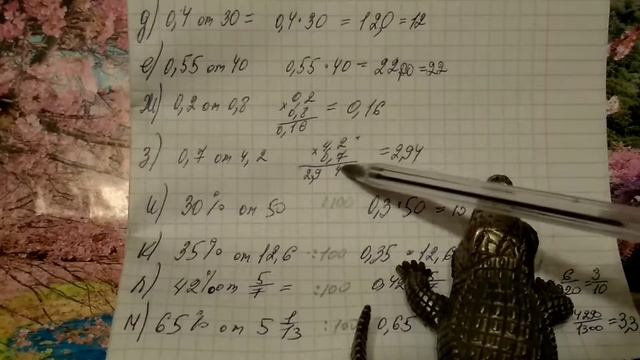 д) 0,4 от 30 = 0,4·30 = 12,0 = 12
е) 0,55 от 40 0,55·40 = 22,00 = 22
ж) 0,2 от 0,8 ×0,2 0,8 0,16 = 0,16
з) 0,7 от 4,2 ×4,2 0,7 2,94 = 2,94
и) 30% от 50 :100 0,3·50 =
к) 35% от 12,6 :100 0,35·12,6
л) 42% от 5/7 = :100 0,42 6/20 = 3/10
м) 65% от 5 1/13 :100 0,65 4290/1300 = 3,3